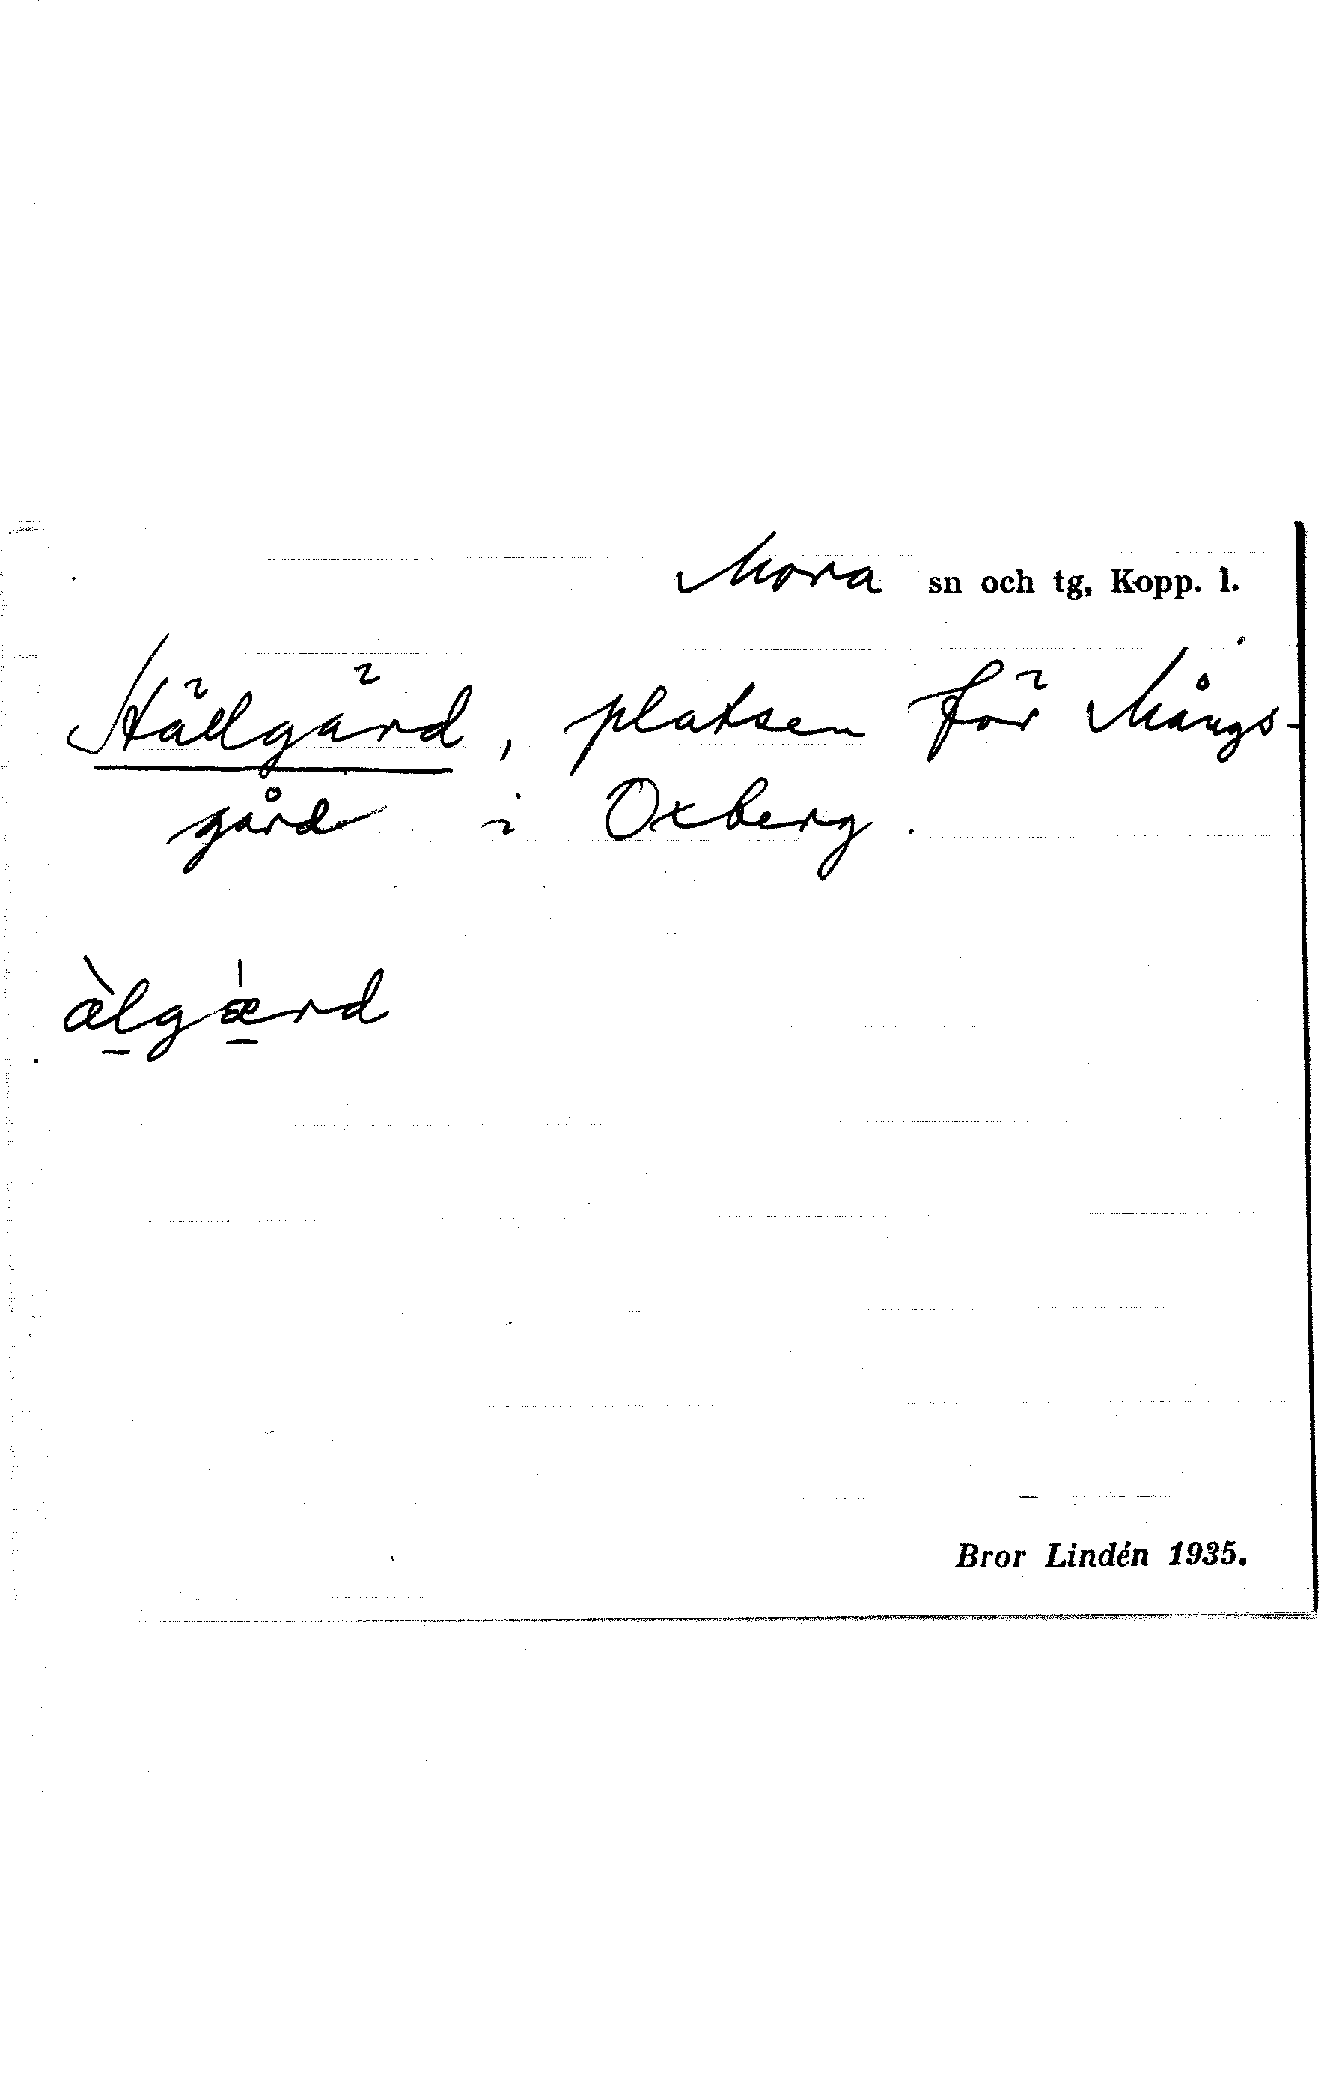 Mora sn och tg, Kopp. l.
Hällgärd, platsen för Mångs-
gård i Oxberg.
àlgǽrd
Bror Lindén 1935.